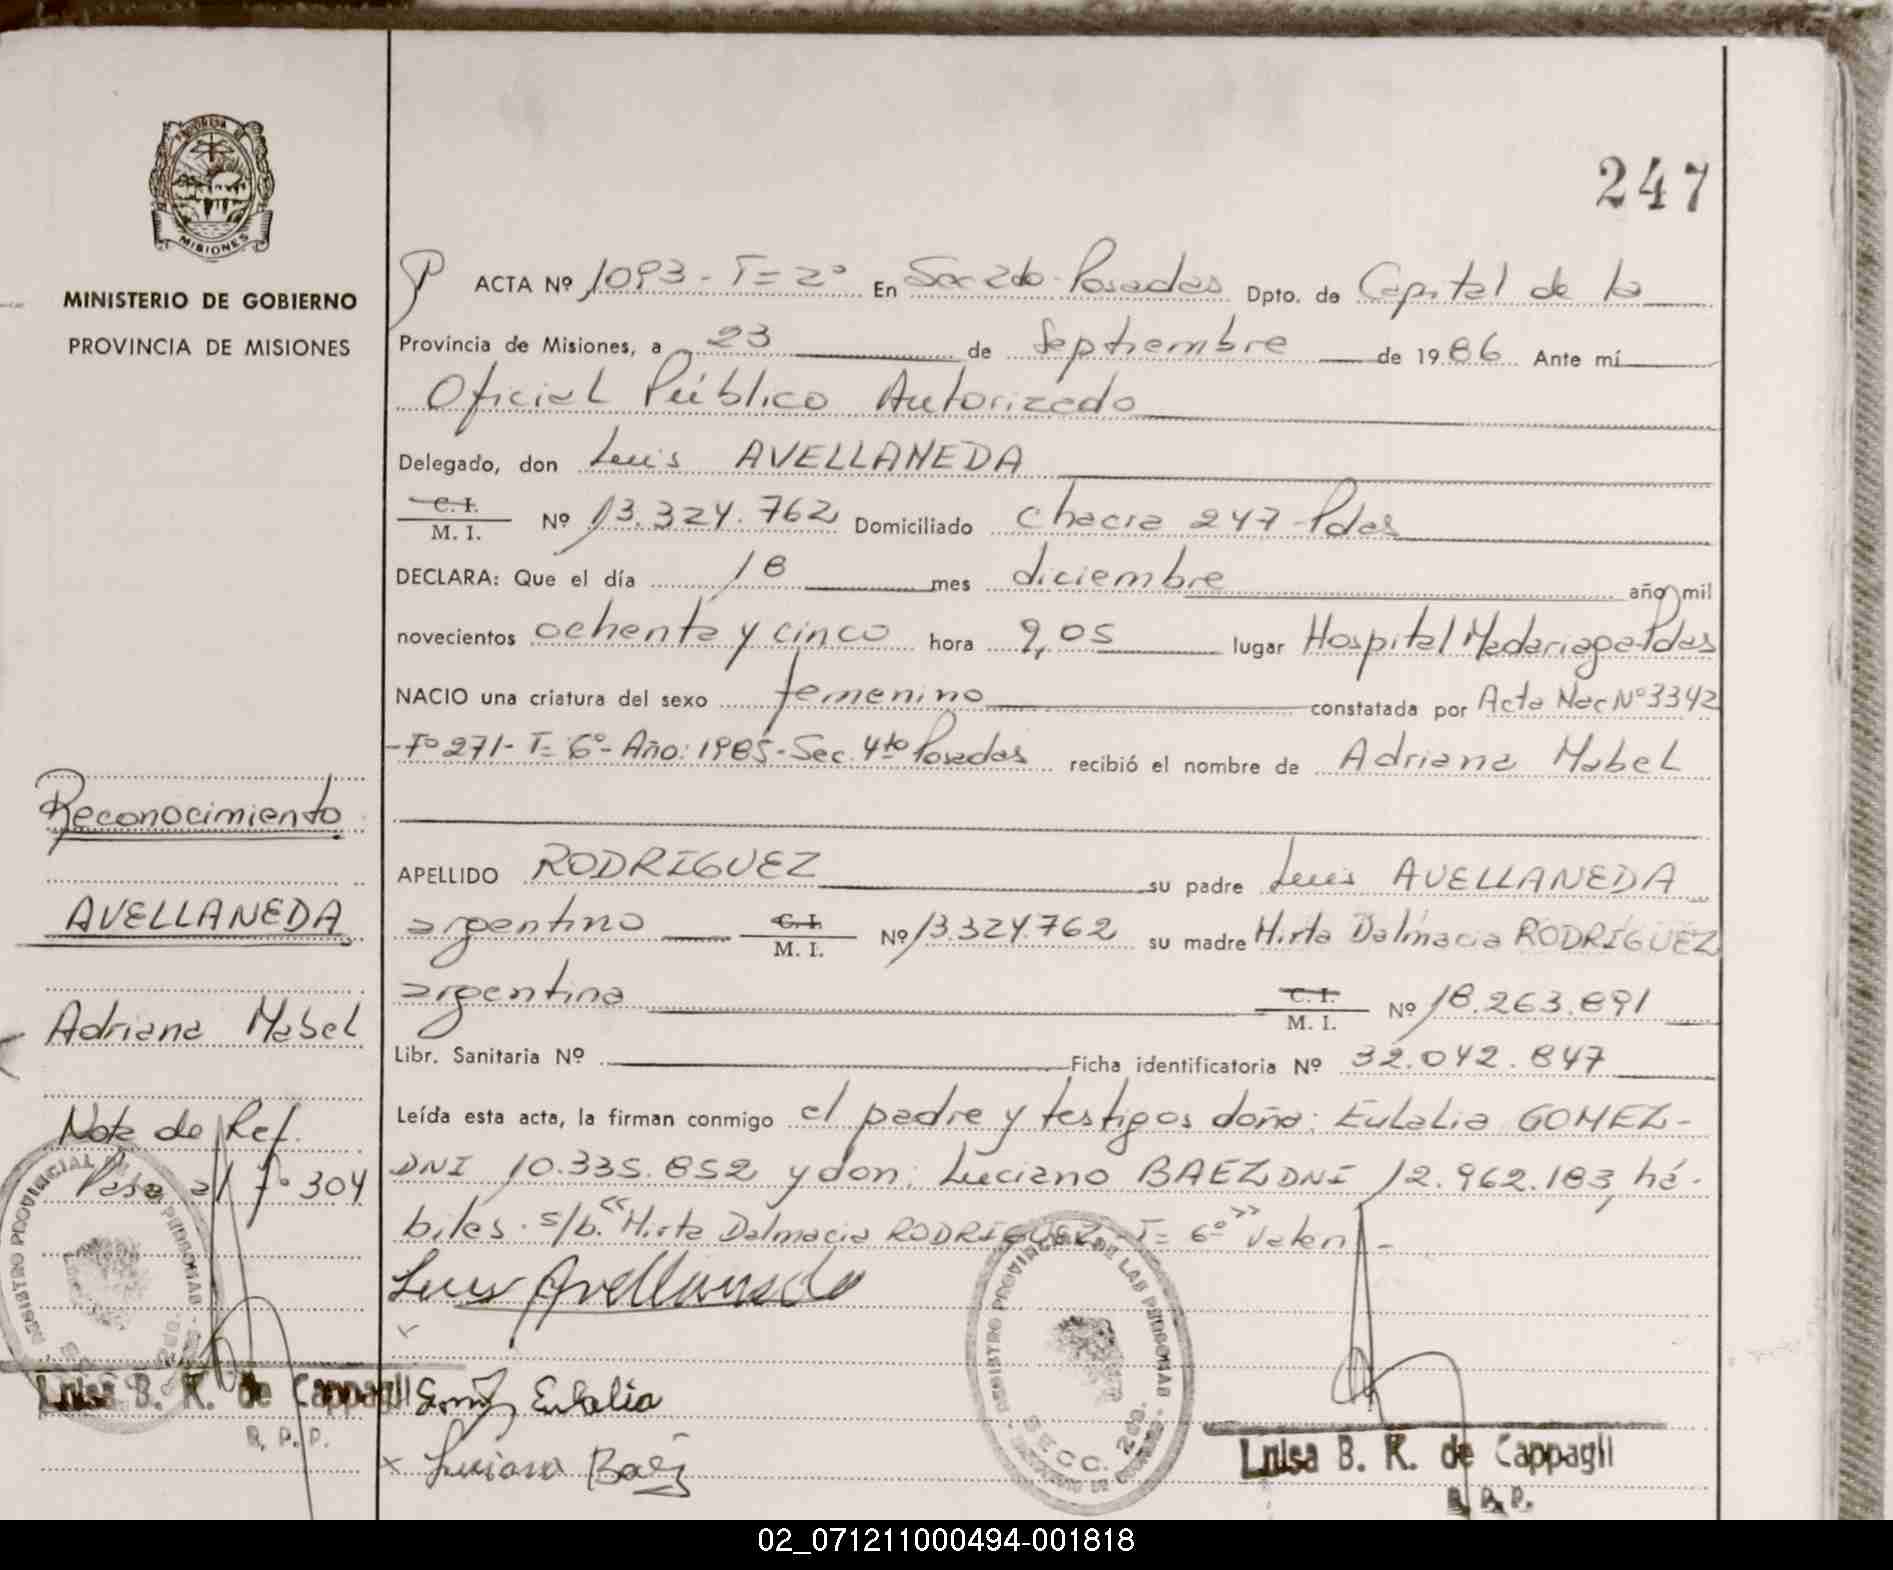 247
PROVINCIA DE
MISIONES
MINISTERIO DE GOBIERNO
PROVINCIA DE MISIONES
Reconocimiento
AVELLANEDA
Adriana Mabel
Nota de Ref.
Pasa al Fº 304
REGISTRO PROVINCIAL DE LAS PERSONAS
SECC. 2da.
Luisa B. K. de Cappagli
R. P. P.
ACTA Nº 1093 - T= 2º En Sec 2do Posadas Dpto. de Capital de la
Provincia de Misiones, a 23 de Septiembre de 1986 Ante mí
Oficial Público Autorizado
Delegado, don Luis AVELLANEDA
C. I.
M. I. Nº 13.324.762 Domiciliado Chacra 247 - Pdas
DECLARA: Que el día 18 mes diciembre año mil
novecientos ochenta y cinco hora 9,05 lugar Hospital Madariaga-Pdas
NACIO una criatura del sexo femenino constatada por Acta Nac Nº 3342
- Fº 271 - T= 6º - Año: 1985 - Sec. 4to Posadas recibió el nombre de Adriana Mabel
APELLIDO RODRIGUEZ su padre Luis AVELLANEDA
argentino C. I. M. I. Nº 13.324.762 su madre Mirta Dalmacia RODRIGUEZ
argentina C. I. M. I. Nº 18.263.891
Libr. Sanitaria Nº Ficha identificatoria Nº 32.042.847
Leída esta acta, la firman conmigo el padre y testigos doña: Eulalia GOMEZ -
DNI 10.335.852 y don: Luciano BAEZ DNI 12.962.183, há-
biles. s/b. "Mirta Dalmacia RODRIGUEZ - T= 6º" Valen -
Luis Avellaneda
Gomez Eulalia
x Luciano Baez
REGISTRO PROVINCIAL DE LAS PERSONAS
SECC. 2da.
Luisa B. K. de Cappagli
R. P. P.
02_071211000494-001818